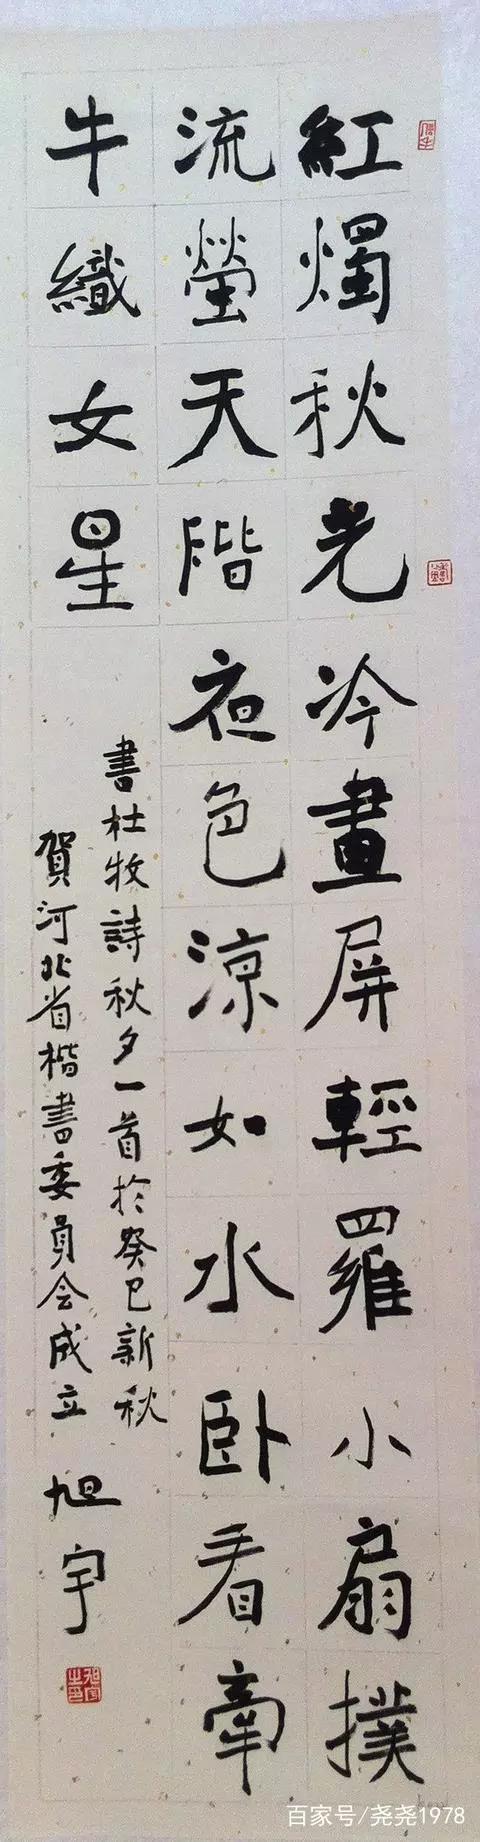 紅燭秋光冷畫屏輕羅小扇撲
流螢天階夜色涼如水臥看牽
牛織女星
書杜牧詩秋夕一首於癸巳新秋
賀河北省楷書委員会成立
旭宇
百家号/尧尧1978